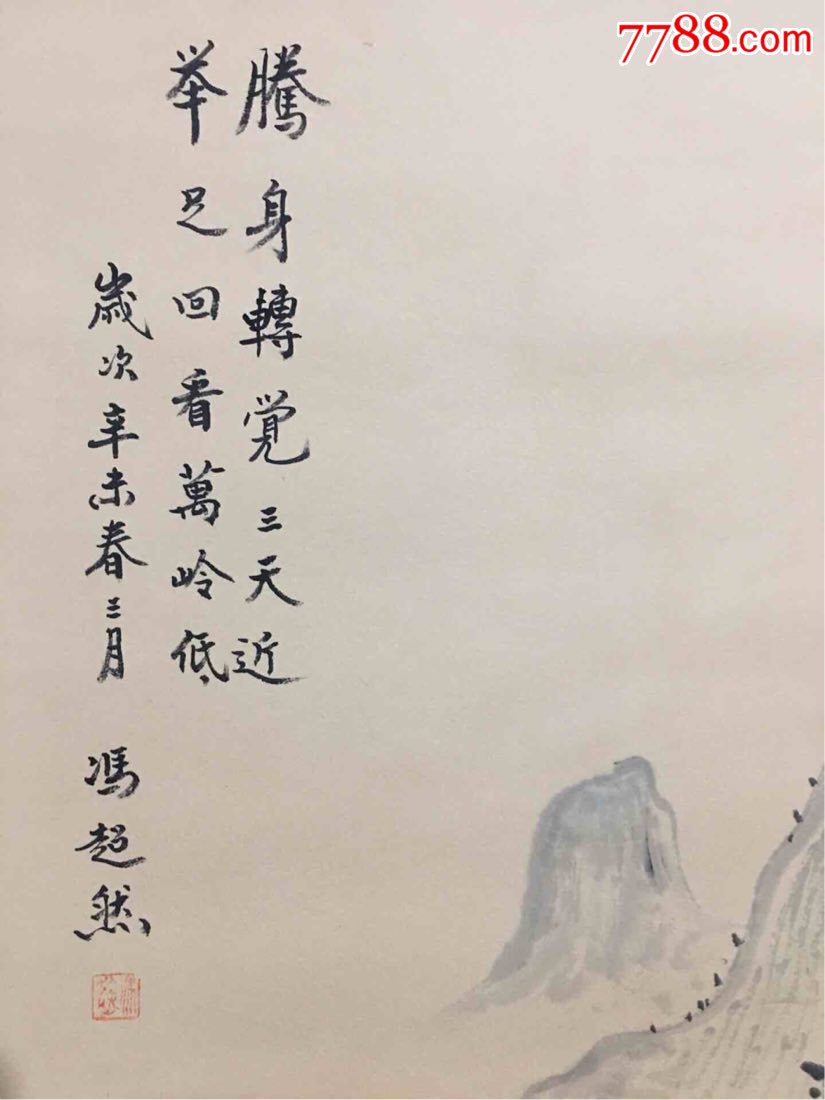 7788.com
騰身轉覺三天近
举足回看萬岭低
歲次辛未春三月 馮超然